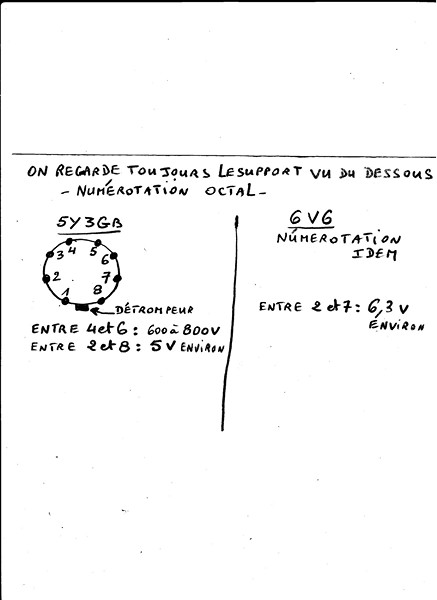 ON REGARDE TOUJOURS LE SUPPORT VU DU DESSOUS
- NUMÉROTATION OCTAL -
5Y3GB
1 2 3 4 5 6 7 8
DÉTROMPEUR
ENTRE 4 et 6 : 600 à 800V
ENTRE 2 et 8 : 5 V ENVIRON
6V6
NÚMEROTATION
IDEM
ENTRE 2 et 7 : 6,3 V
ENVIRON